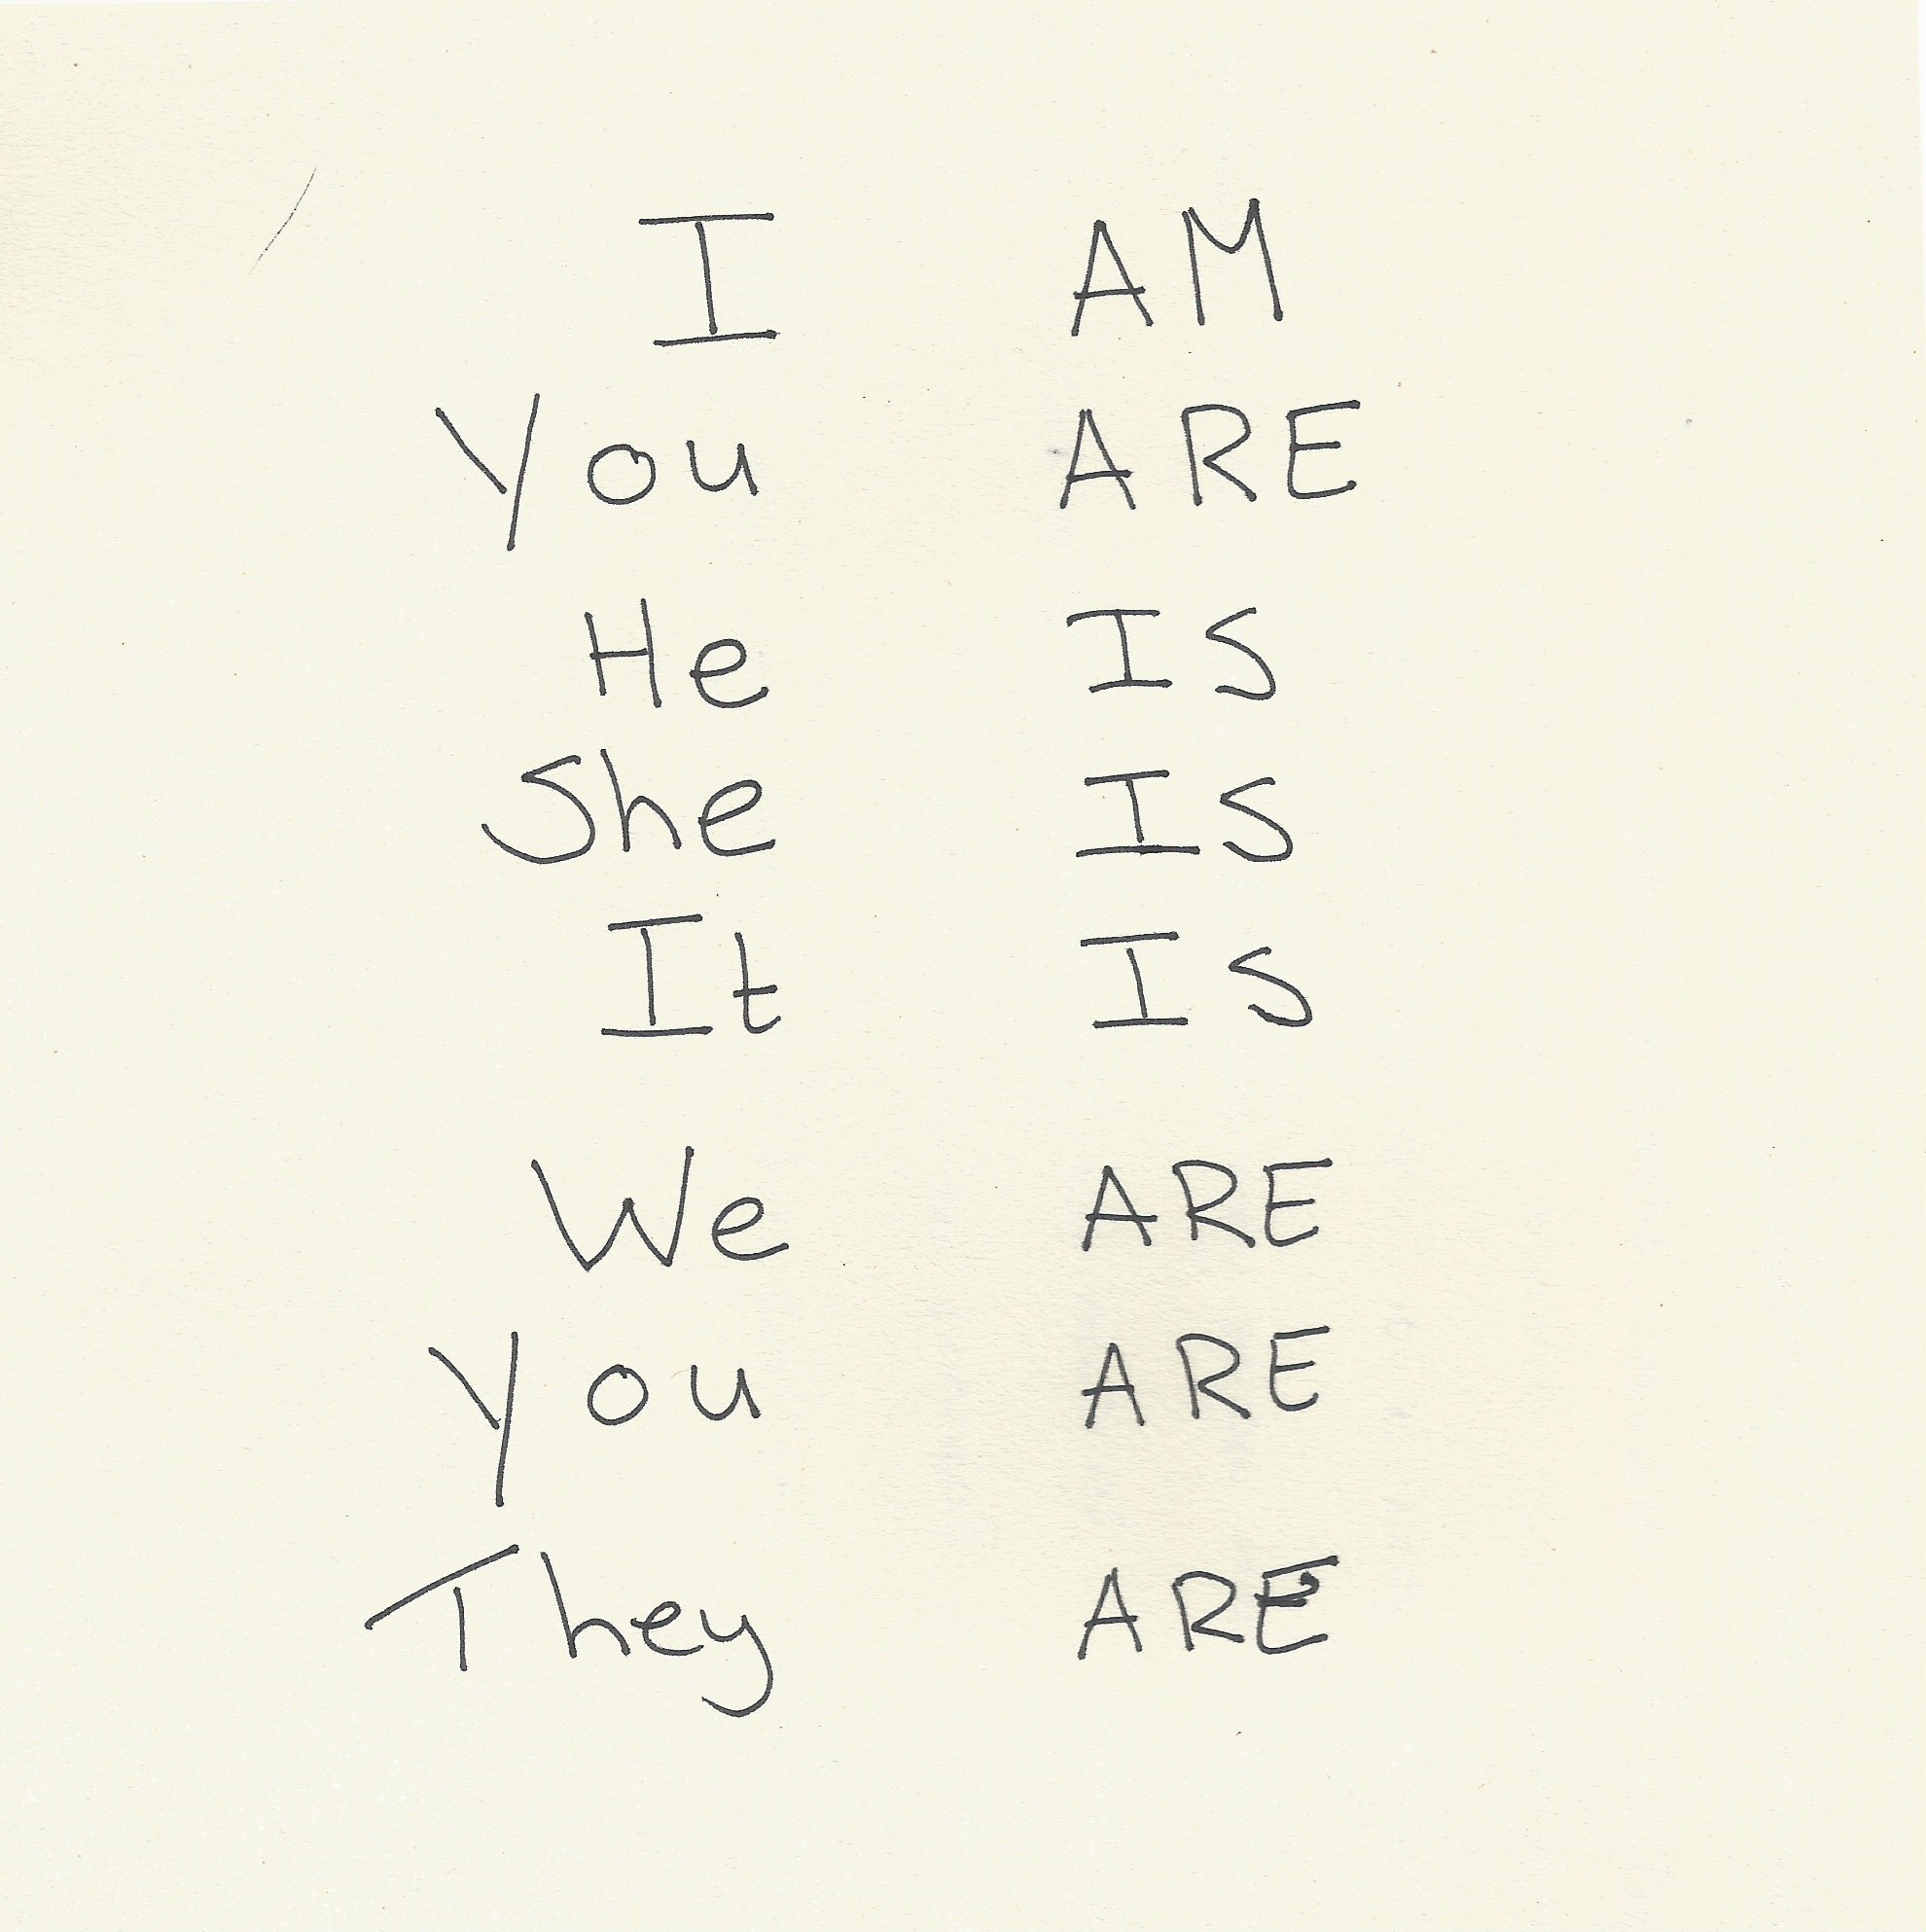 I AM
You ARE
He IS
She IS
It IS
We ARE
You ARE
They ARE